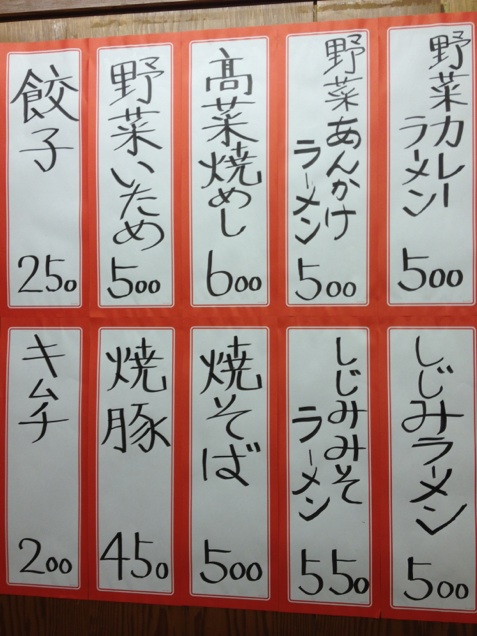 野菜カレー
ラーメン
500
野菜あんかけ
ラーメン
500
高菜焼めし
600
野菜いため
500
餃子
250
しじみラーメン
500
しじみみそ
ラーメン
550
焼そば
500
焼豚
450
キムチ
200